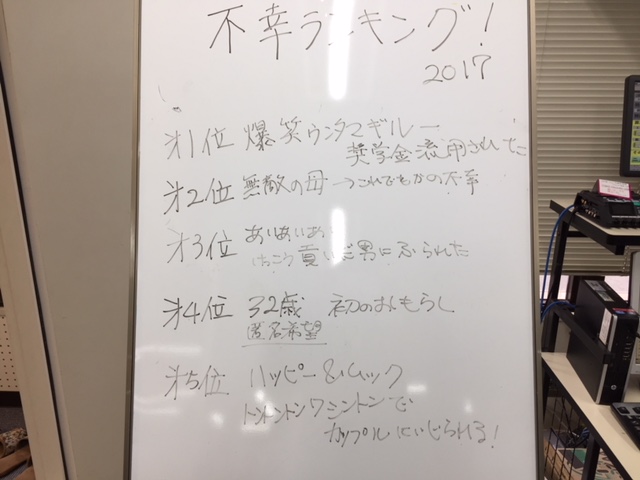 不幸ランキング!
2017
才1位 爆笑ウンタマギルー
奨学金流用されてた
才2位 無敵の母→これでもかの不幸
才3位 あいあいあ
けっこう貢いだ男にふられた
才4位 32歳 初のおもらし
匿名希望
才5位 ハッピー&ムック
トントントンワシントンで
カップルにいじられる!